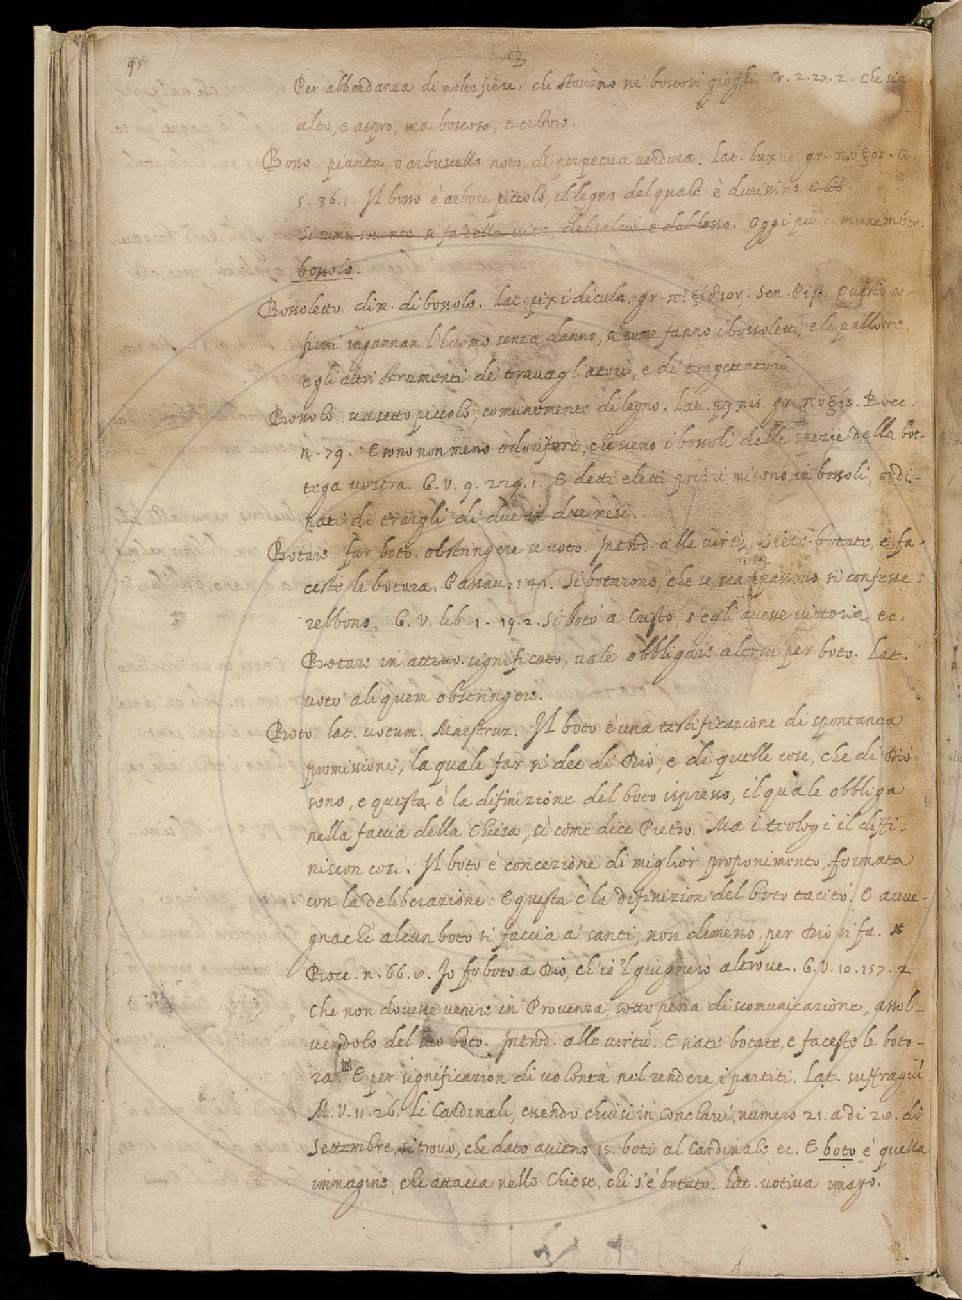 95
B
Per abbondanza di molte fiere, che stavano ne' boscosi gioghi. Cr. 2. 27. 2. Che sia
alto, e aspro, ma boscoso, e erboso.
Bosso pianta, o arbuscello noto, di perpetua verdura. Lat. buxus gr. πύξος. Cr.
5. 36. 1. Il bosso è arbore piccolo, il legno del quale è durissimo e
del bosso. Oggi più comunemẽte
bossolo.
Bossoletto. dim. di bossolo. Lat. pixidicula. gr. πυξίδιον. Sen. Pist. Questi so-
fismi ingannan l'huomo senza danno, sì come fanno i bossoletti, e le pallotte,
e gli altri strumenti de' travagliatori, e di tragettatori.
Bossolo vasetto piccolo, comunemente di legno. Lat. pyxis. gr. πυξὶς. Bocc.
n. 79. E sono non meno odoriferi, che sieno i bossoli delle spezie della bot-
tega vostra. G. V. 9. 229. 1. E detti eletti priori misono in bossoli, ordi-
nati di traigli di due in due mesi.
Botare. far boto. obstringere se voto. Introd. alle virtù. Siete botate, e fa-
ceste le botora. Passav. 141. Si botarono, che se scampassono si confesse-
rebbono. G. V. lib. 1. 19. 2. Si botò a Cristo, s'egli avesse vittoria, ec.
Botare in attivo significato, vale obbligare altrui per boto. Lat.
voto aliquem obstringere.
Boto. lat. votum. Maestruz. Il boto è una testificazione di spontanea
promissione, la quale far si dee di Dio, e di quelle cose, che di Dio
sono, e questa è la difinizione del boto ispresso, il quale obbliga
nella faccia della Chiesa, sì come dice Pietro. Ma i teologi il diffi-
niscon così. Il boto è concezione di miglior proponimento, formata
con la deliberazione. E questa è la difinizion del boto tacito. E avve-
gnachè alcun boto si faccia a' santi, non dimeno, per Dio si fa.
Bocc. n. 66. Io fo boto a Dio, ch'io 'l giugnerò altrove. G. V. 10. 157. 2
Che non dovesse venire in Provenza, sotto pena di scomunicazione, assol-
vendolo del suo boto. Introd. alle virtù. E siate botate, e faceste le boto-
ra. E per significazion di volontà nel rendere i partiti. Lat. suffragiũ
M. V. 11. 26. Li Cardinali, essendo chiusi in Conclavi, numero 21. a di 20. di
Settembre, si trovò, che dato avieno 15. boti al Cardinale ec. E boto è quella
immagine, che attacca nelle Chiese, chi s'è botato. Lat. votiva imago.